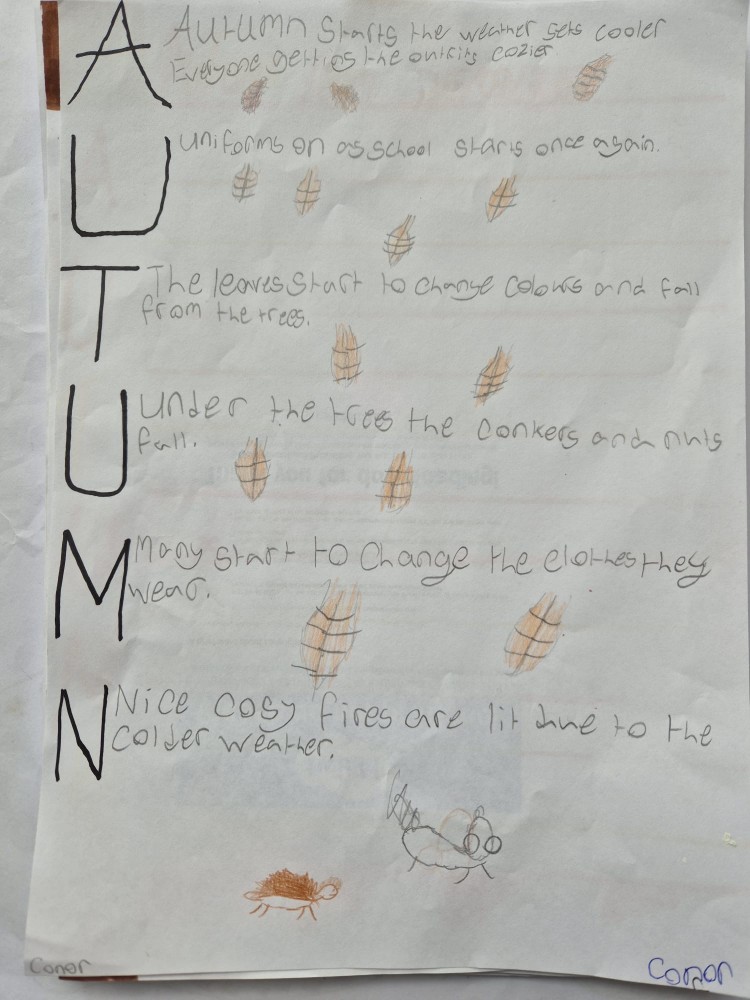 A Autumn starts the weather gets cooler
Everyone getting the outfits cozier
U uniforms on as school starts once again.
T The leaves start to change colours and fall
from the trees.
U Under the trees the conkers and nuts
fall.
M Many start to change the clothes they
wear.
N Nice cosy fires are lit due to the
colder weather.
Conor
Conor